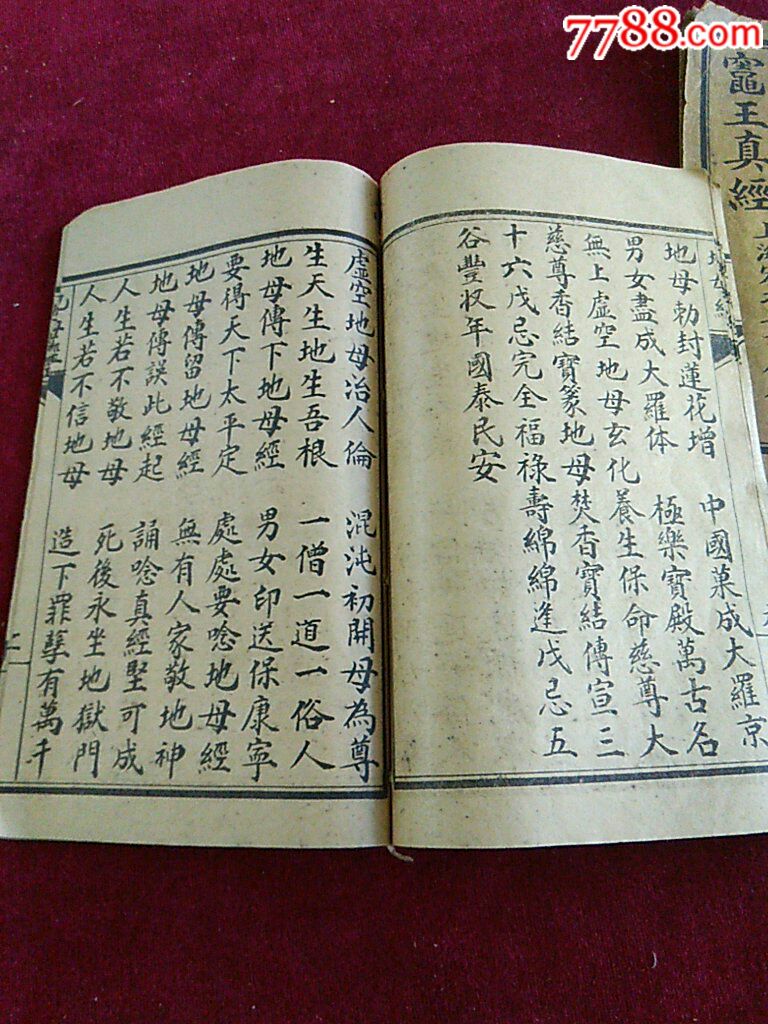 7788.com
竈王真經
地母勅封蓮花增 中國菓成大羅京
男女盡成大羅体 極樂寶殿萬古名
無上虛空地母玄化養生保命慈尊大
慈尊香結寶篆地母焚香寶結傳宣三
十六戊忌完全福祿壽綿綿逢戊忌五
谷豐收年國泰民安
虛空地母治人倫 混沌初開母為尊
生天生地生吾根 一僧一道一俗人
地母傳下地母經 男女印送保康寧
要得天下太平定 處處要唸地母經
地母傳留地母經 無有人家敬地神
地母傳誤此經起 誦唸真經堅可成
人生若不敬地母 死後永坐地獄門
人生若不信地母 造下罪孽有萬千